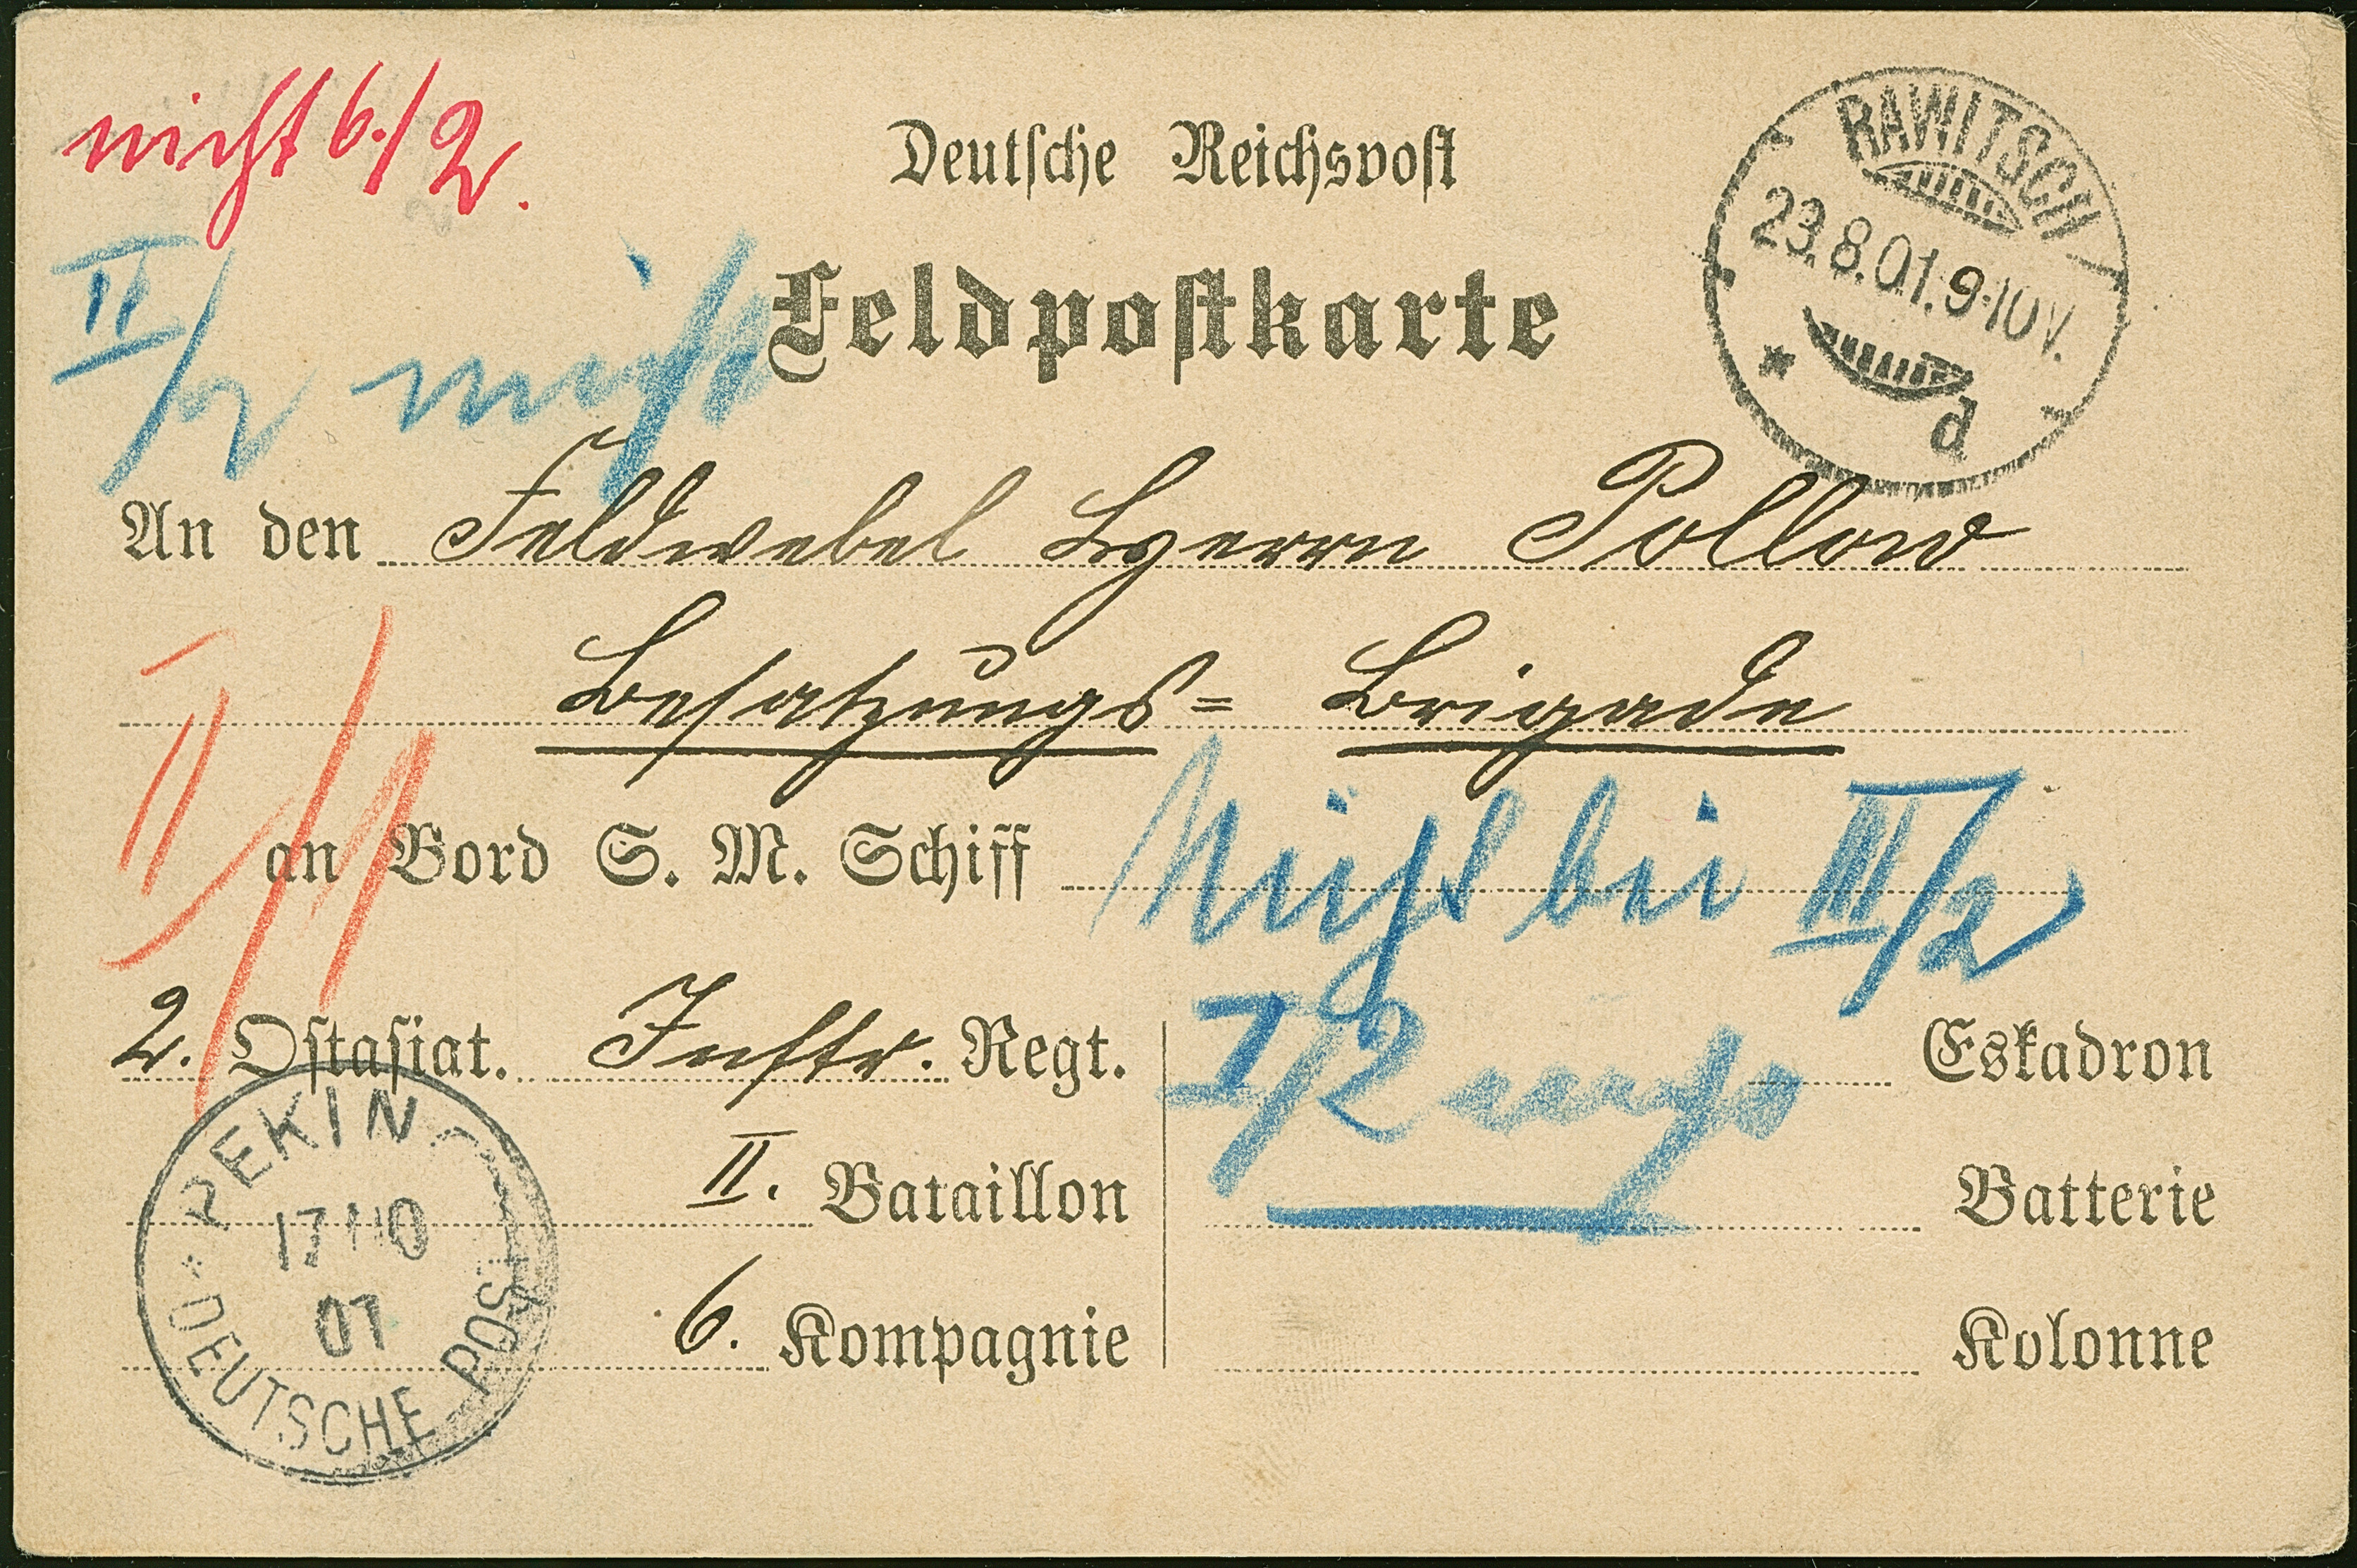 nicht 6./2.
Deutsche Reichspost
RAWITSCH
23.8.01.9-10V.
* d
II/2 nicht
Feldpostkarte
An den Feldwebel Herrn Pollow
Besatzungs= Brigade
II/1
an Bord S. M. Schiff
Nicht bei III/2
2. Ostasiat. Inftr. Regt.
I/2 nicht
Eskadron
II. Bataillon
Batterie
6. Kompagnie
Kolonne
PEKING
17 10
01
DEUTSCHE POST